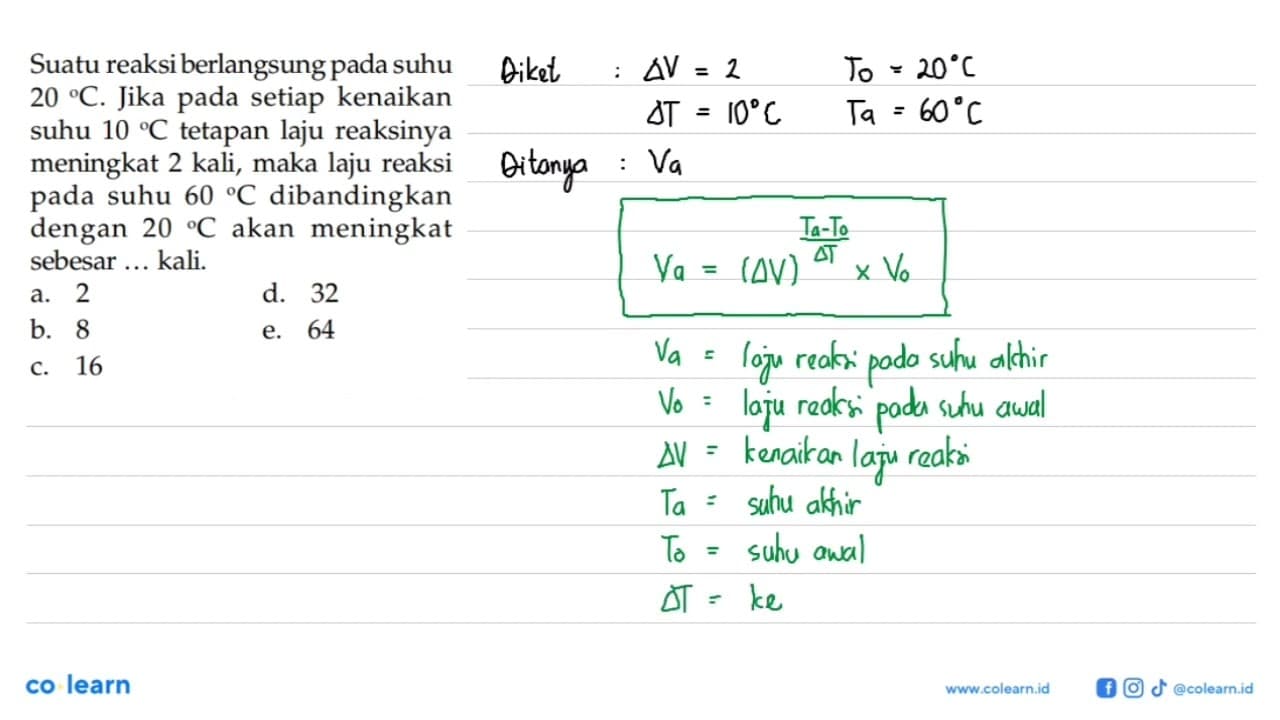 Suatu reaksi berlangsung pada suhu
20 °C. Jika pada setiap kenaikan
suhu 10 °C tetapan laju reaksinya
meningkat 2 kali, maka laju reaksi
pada suhu 60 °C dibandingkan
dengan 20 °C akan meningkat
sebesar ... kali.
a. 2 d. 32
b. 8 e. 64
c. 16
Diket : ΔV = 2 To = 20°C
ΔT = 10°C Ta = 60°C
Ditanya : Va
Va = (ΔV)^((Ta-To)/ΔT) × Vo
Va = laju reaksi pada suhu akhir
Vo = laju reaksi pada suhu awal
ΔV = kenaikan laju reaksi
Ta = suhu akhir
To = suhu awal
ΔT = ke
co learn
www.colearn.id @colearn.id